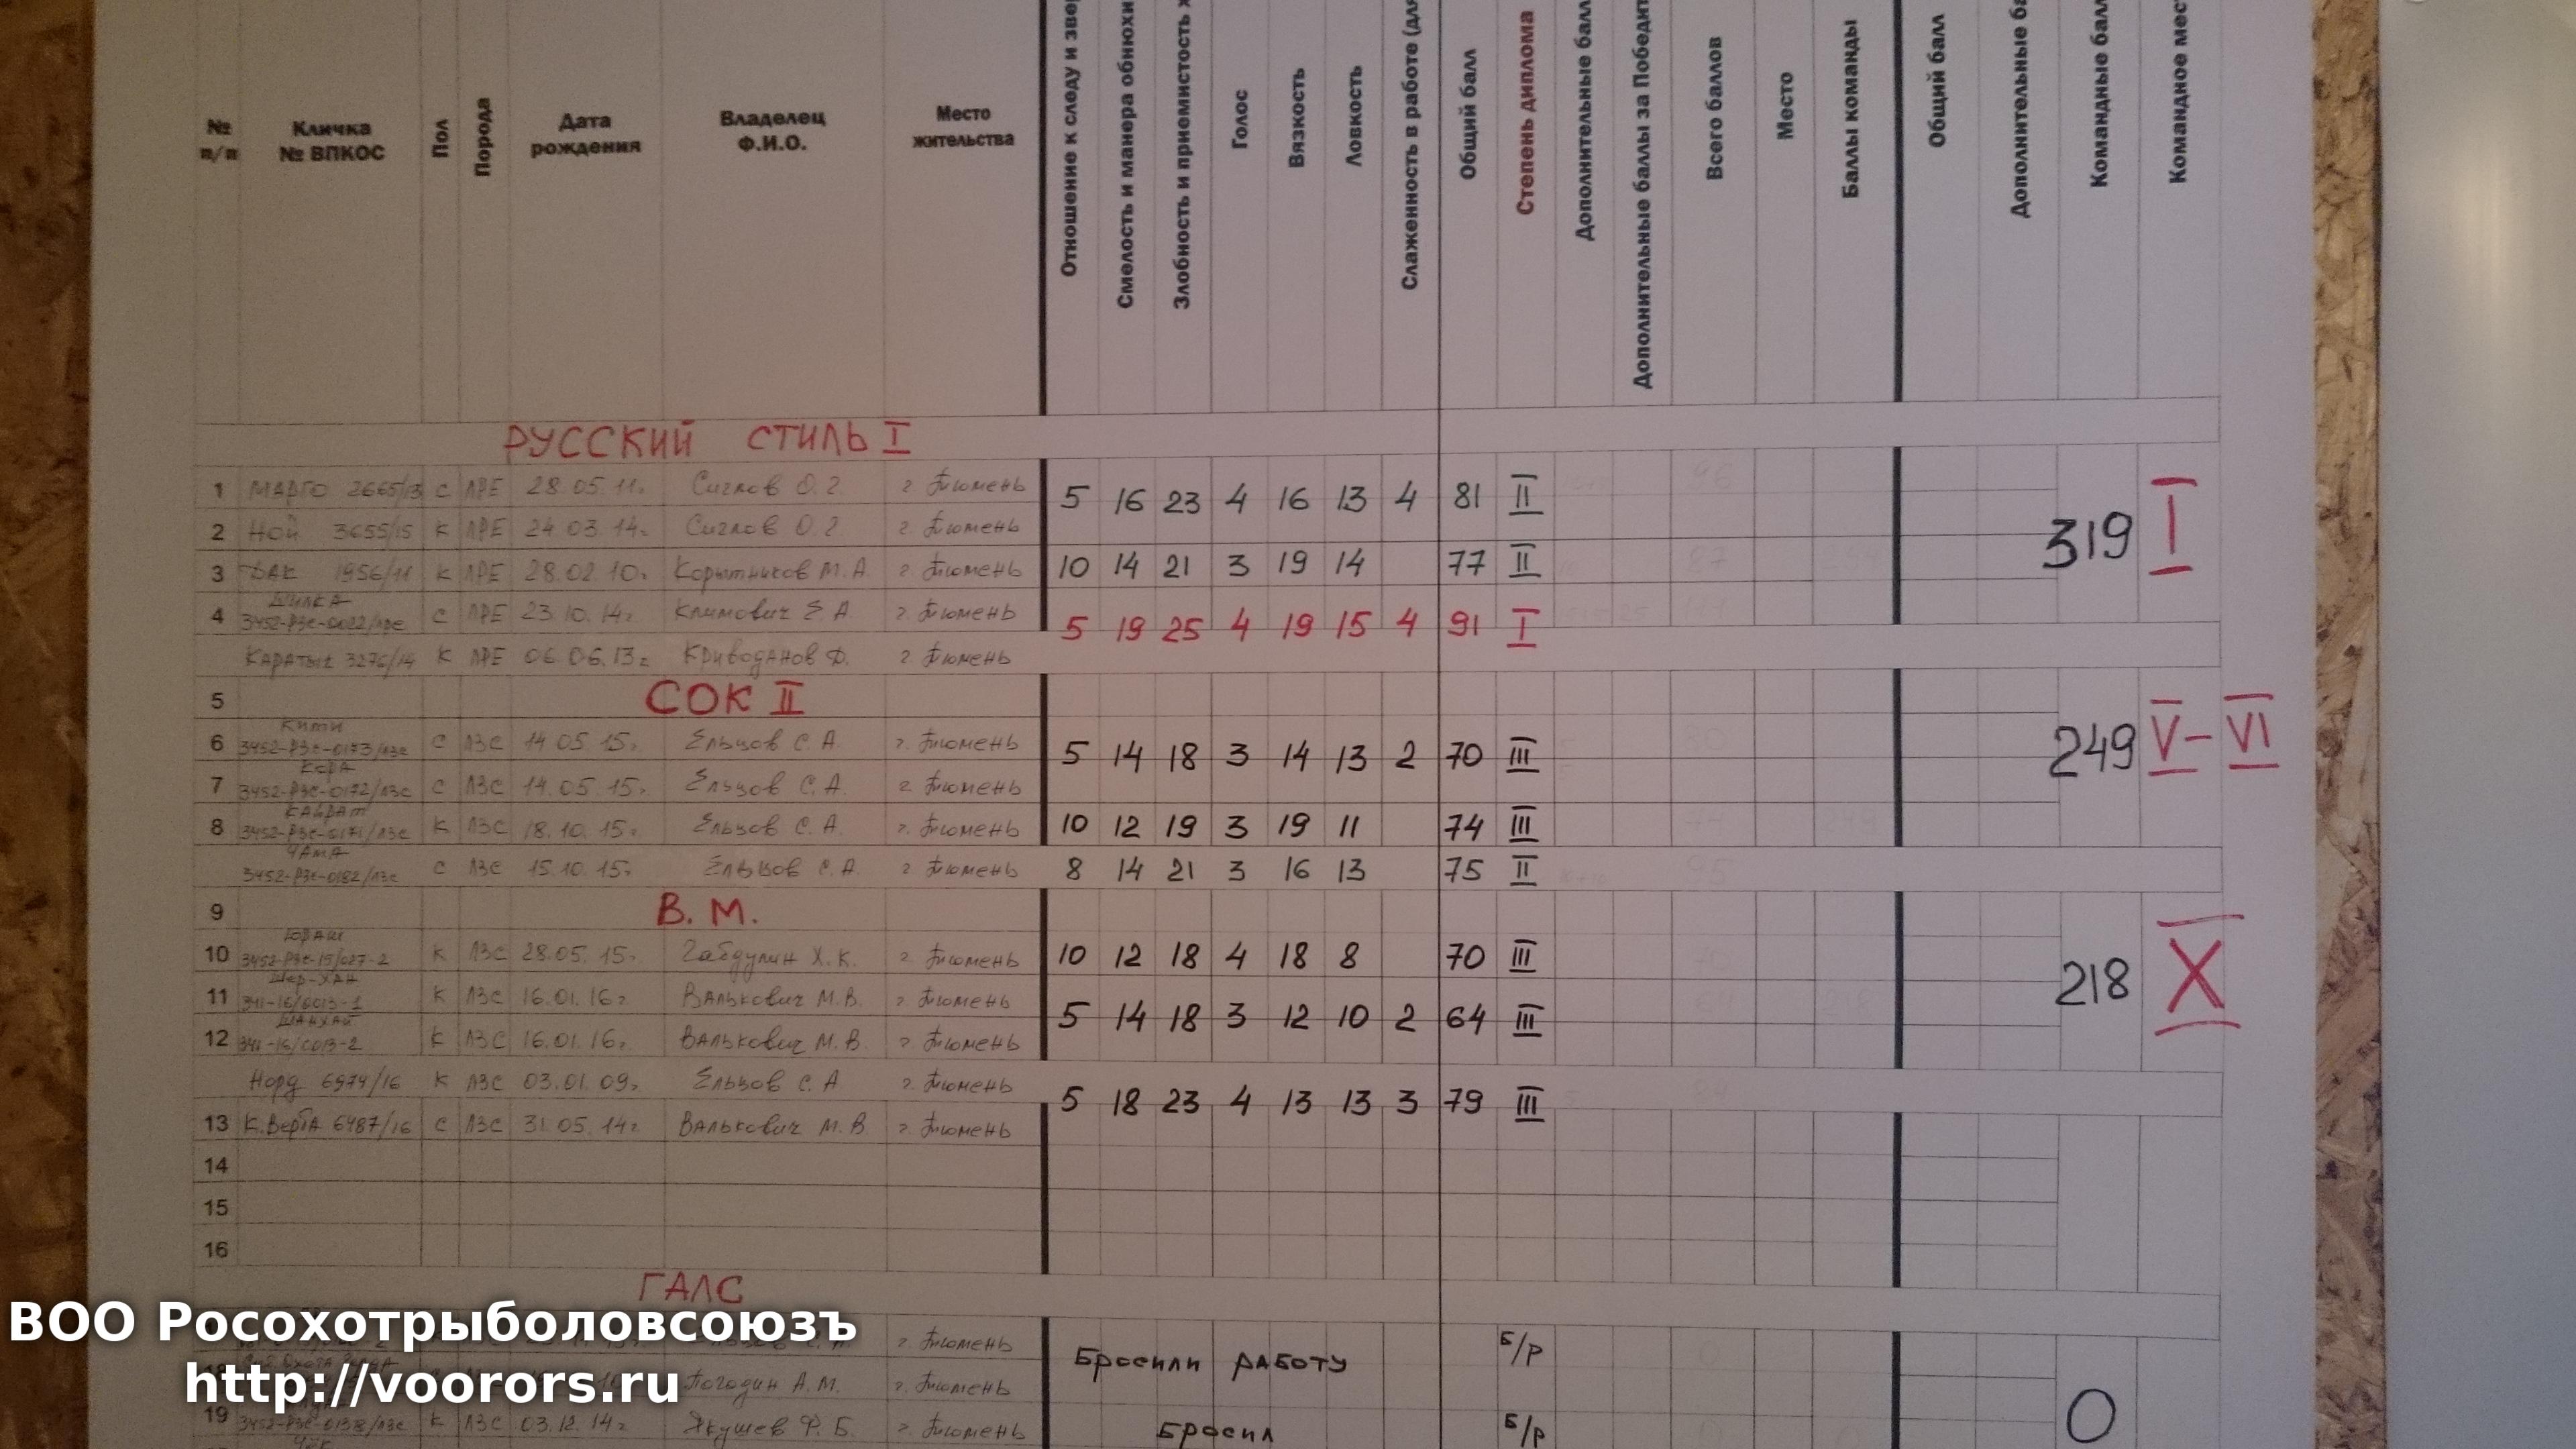 № п/п Кличка № ВПКОС Пол Порода Дата рождения Владелец Ф.И.О. Место жительства Отношение к следу и Смелость и манера Злобность и приемистость Голос Вязкость Ловкость Слаженность в работе Общий балл Степень диплома Дополнительные Дополнительные баллы за Всего баллов Место Баллы команды Общий балл Дополнительные Командные Командное
РУССКИЙ СТИЛЬ I
1 МАРГО 2665/13 С ЛРЕ 28.05.11г. Сиглов О.Г. г. Тюмень 5 16 23 4 16 13 4 81 II
2 Ной 3655/15 К ЛРЕ 24.03.14г. Сиглов О.Г. г. Тюмень
319 I
3 1956/11 К ЛРЕ 28.02.10г. Корытников М.А. г. Тюмень 10 14 21 3 19 14 77 II
4 3452-РЗС-0022/лре С ЛРЕ 23.10.14г. Климович Е.А. г. Тюмень 5 19 25 4 19 15 4 91 I
3276/14 К ЛРЕ 06.06.13г. Криводанов Д. г. Тюмень
5 СОК II
Кити
6 3452-РЗС-0173/лзс С ЛЗС 14.05.15г. Ельцов С.А. г. Тюмень 5 14 18 3 14 13 2 70 III
249 V-VI
Кора
7 3452-РЗС-0172/ЛЗС С ЛЗС 14.05.15г. Ельцов С.А. г. Тюмень
8 3452-РЗС-0171/ЛЗС К ЛЗС 18.10.15г. Ельцов С.А. г. Тюмень 10 12 19 3 19 11 74 III
3452-РЗС-0182/лзс С ЛЗС 15.10.15г. Ельцов С.А. г. Тюмень 8 14 21 3 16 13 75 II
9 В. М.
10 3452-РЗС-15/027-2 К ЛЗС 28.05.15г. Габдулин Х.К. г. Тюмень 10 12 18 4 18 8 70 III
218 X
Шер-Хан
11 341-16/0013-1 К ЛЗС 16.01.16г Валькович М.В. г. Тюмень 5 14 18 3 12 10 2 64 III
ШАНХАЙ
12 341-16/0013-2 К ЛЗС 16.01.16г. Валькович М.В. г. Тюмень
Норд 6974/16 К ЛЗС 03.01.09г. Ельцов С.А г. Тюмень 5 18 23 4 13 13 3 79 III
13 К.ВерТА 6487/16 С ЛЗС 31.05.14г Валькович М.В г. Тюмень
14
15
16
ГАЛС
г. Тюмень Бросили работу Б/Р
Погодин А.М. г. Тюмень
0
19 К ЛЗС 03.12.14г Якушев Ф.Б. г. Тюмень Бросил Б/Р
ВОО Росохотрыболовсоюзъ
http://voorors.ru